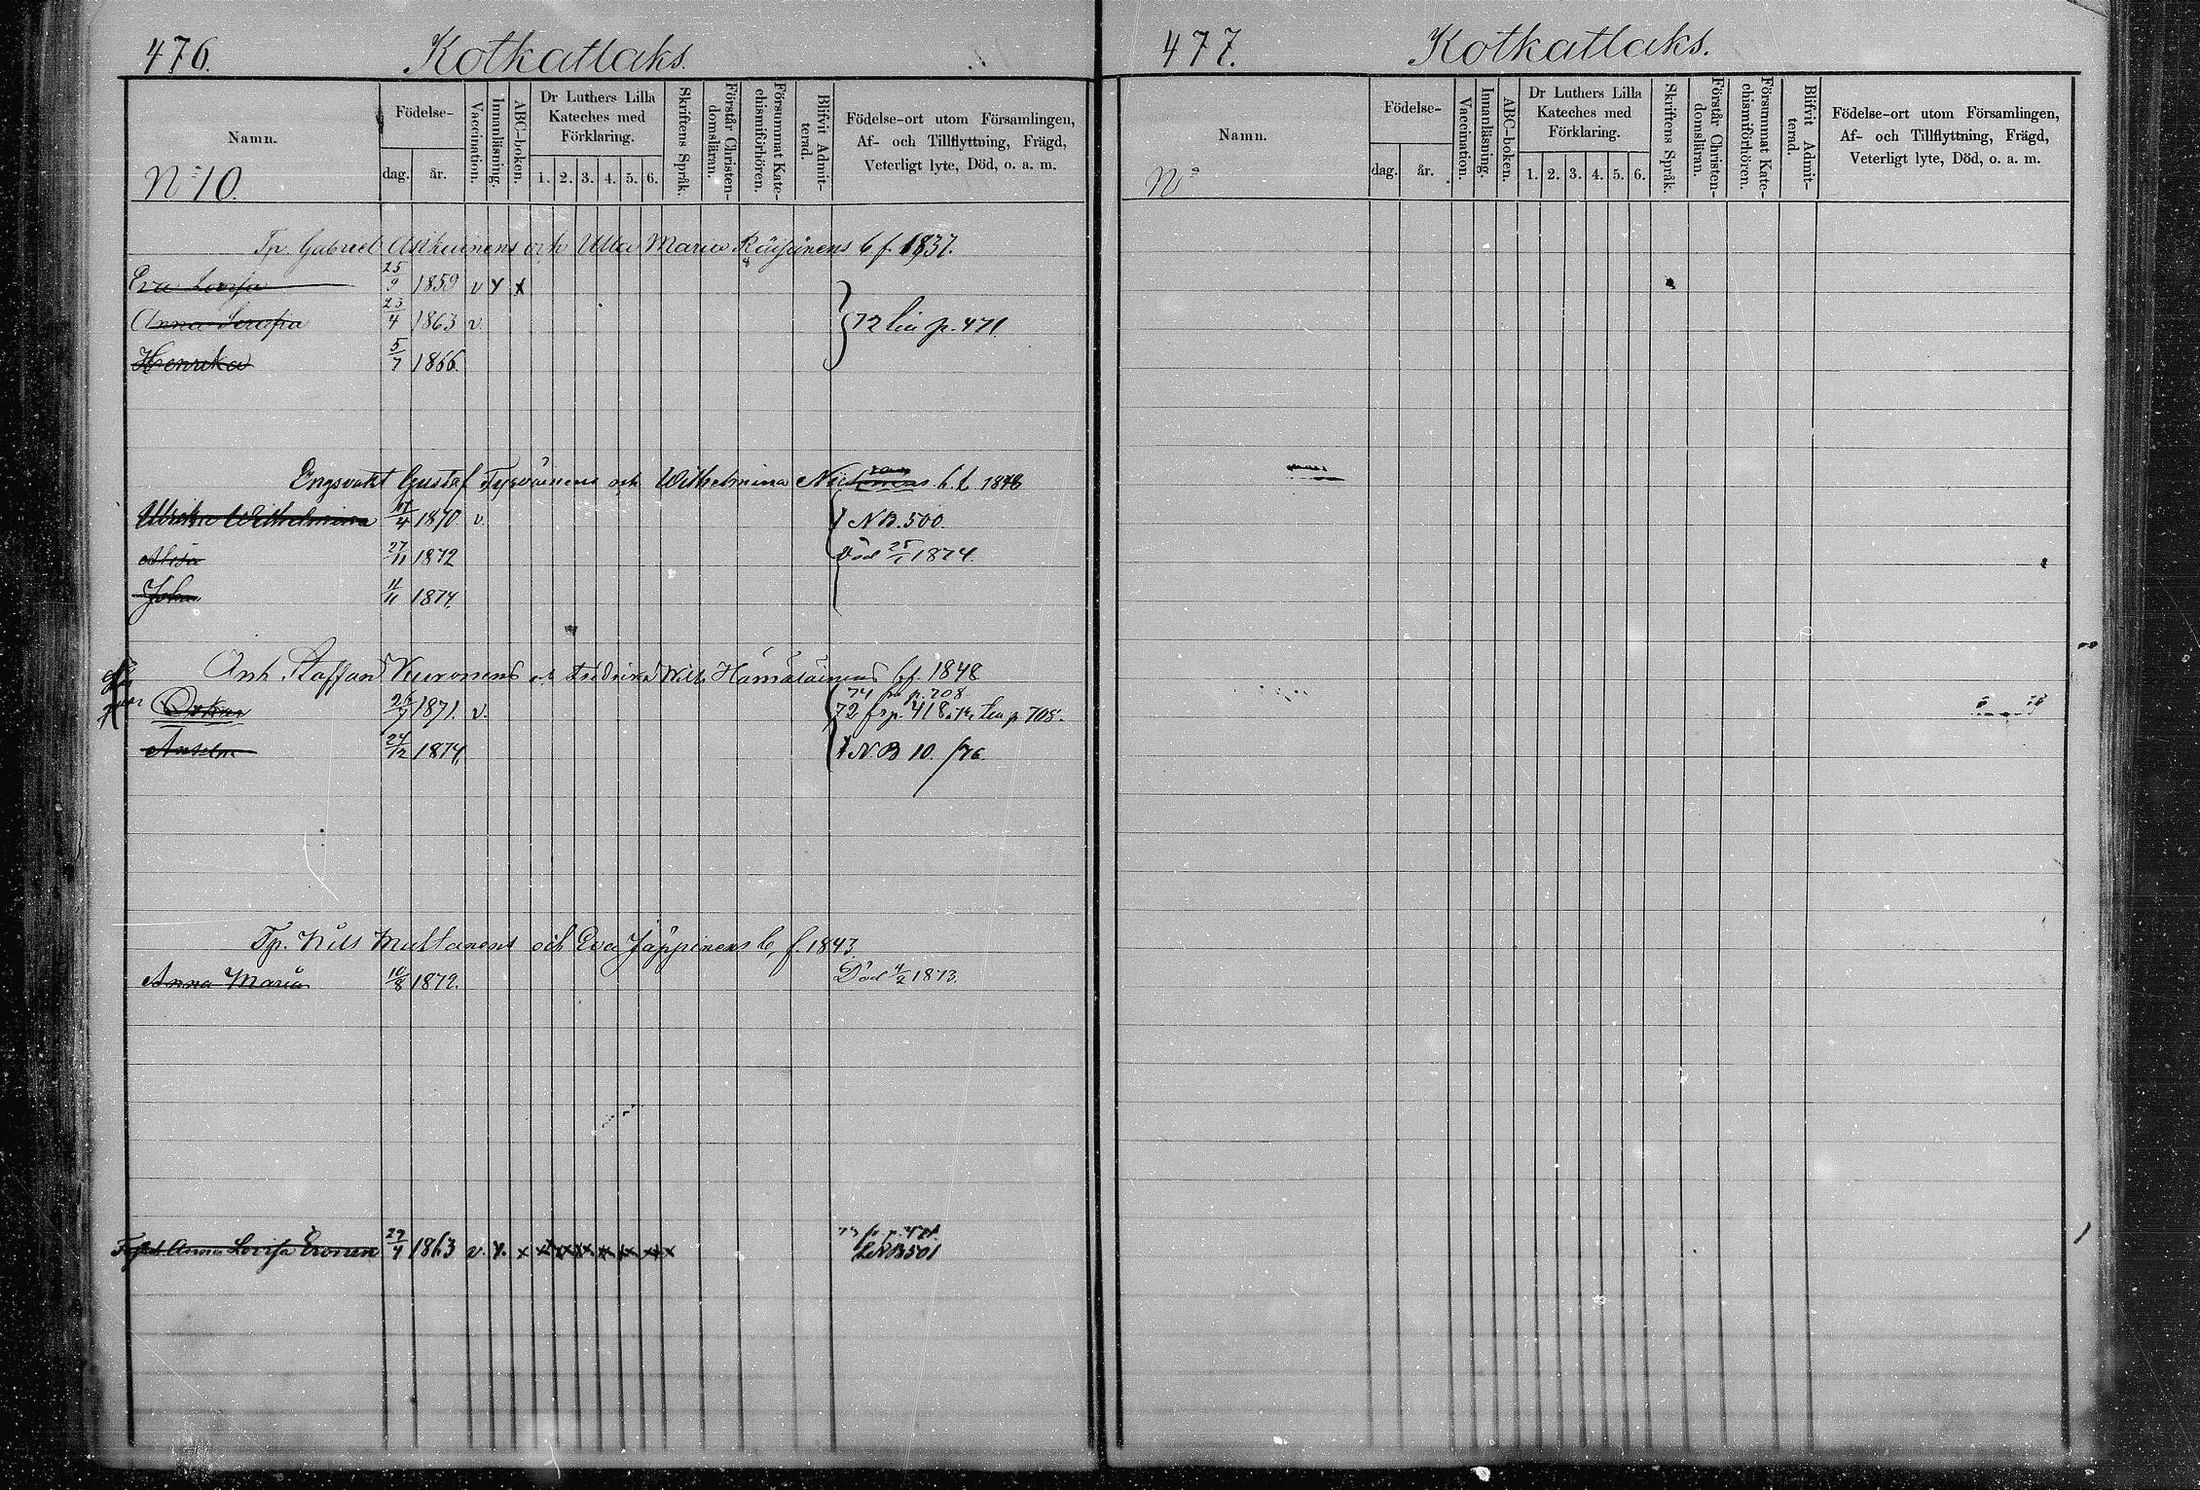 476. Kotkatlaks.
Namn.
Födelse-
dag.
år.
Vaccination.
Innanläsning.
ABC-boken.
Dr Luthers Lilla
Kateches med
Förklaring.
1. 2. 3. 4. 5. 6.
Skriftens Språk.
Förstår Christen-
domsläran.
Försummat Kate-
chismiförhören.
Blifvit Admit-
terad.
Födelse-ort utom Församlingen,
Af- och Tillflyttning, Frägd,
Veterligt lyte, Död, o. a. m.
No 10.
Tp. Gabriel och Ulla Maria Räisänens b f. 1837.
Eva Lovisa 25/9 1859 v
Anna Serafia 23/4 1863 v.
72 lia p. 471.
Henrika 5/7 1866.
Gustaf Tyrväinens och Wilhelmina
Ulrika Wilhelmina 1870 v. NB. 500.
27/11 1872 Död 1874.
Johan 11/11 1874.
Staffan Kuronens Hämäläinens b f. 1848
74 fr p. 708
Oskar 1871. v. 72 fr p. 418 lia p 708.
Anselm 24/12 1874, N.B 10. /76.
Tp. Nils och Eva Jäppinens b, f. 1843.
Anna Maria 10/8 1872. Död 4/2 1873.
Anna Lovisa Eronen 1863 v. x x x x x x x x
NB 501
477. Kotkatlaks.
Namn.
Födelse-
dag.
år.
Vaccination.
Innanläsning.
ABC-boken.
Dr Luthers Lilla
Kateches med
Förklaring.
1. 2. 3. 4. 5. 6.
Skriftens Språk.
Förstår Christen-
domsläran.
Försummat Kate-
chismiförhören.
Blifvit Admit-
terad.
Födelse-ort utom Församlingen,
Af- och Tillflyttning, Frägd,
Veterligt lyte, Död, o. a. m.
No